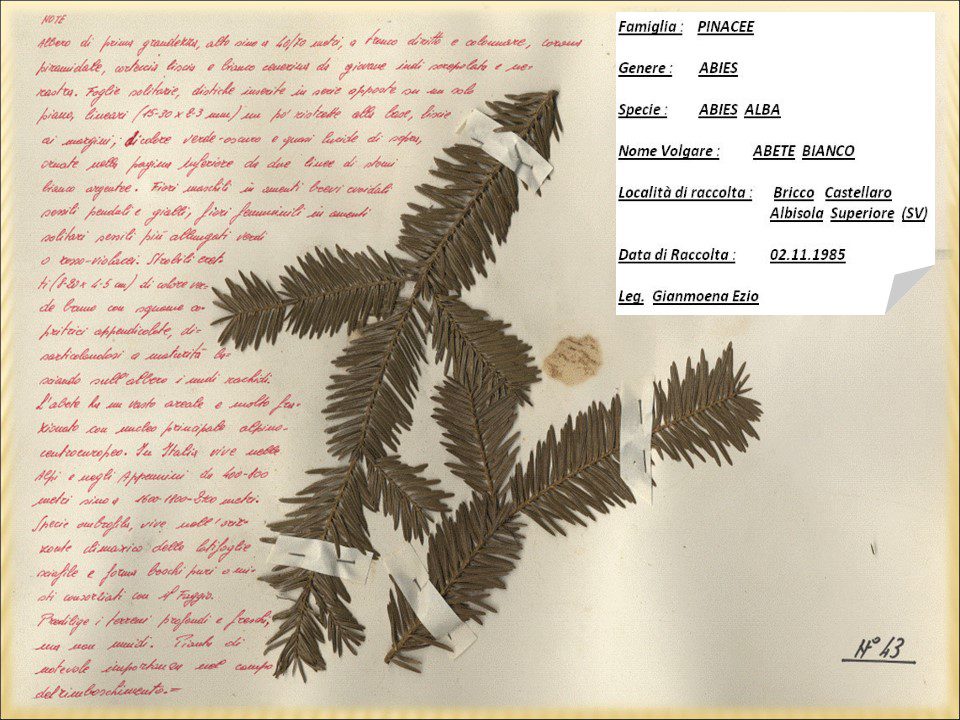 NOTE
Albero di prima grandezza, alto sino a 40/70 metri, a tronco diritto e colonnare, corona
piramidale, corteccia liscia e bianco cenerina da giovane indi screpolata e ne-
rastra. Foglie solitarie, distiche inserite in serie opposte su un solo
piano, lineari (15-30 x 2-3 mm) un po' ristrette alla base, lisce
ai margini; di colore verde-oscuro e quasi lucide di sopra,
ornate nella pagina inferiore da due linee di stomi
bianco argentee. Fiori maschili in amenti brevi ovoidali
sessili penduli e gialli, fiori femminili in amenti
solitari sessili più allungati verdi
o rosso-violacei. Strobili eret-
ti (8-20 x 4-5 cm) di colore ver-
de bruno con squame co-
pritrici appendicolate, di-
sarticolandosi a maturità la-
sciando sull'albero i nudi rachidi.
L'abete ha un vasto areale e molto fra-
zionato con nucleo principale alpino-
centroeuropeo. In Italia vive nelle
Alpi e negli Appennini da 400-800
metri sino a 1600-1800-2100 metri.
Specie ombrofila, vive nell'oriz-
zonte climaxico delle latifoglie
sciafile e forma boschi puri o mi-
sti consociati con il Faggio.
Predilige i terreni profondi e freschi,
ma non umidi. Pianta di
notevole importanza nel campo
del rimboschimento.=
Famiglia : PINACEE
Genere : ABIES
Specie : ABIES ALBA
Nome Volgare : ABETE BIANCO
Località di raccolta : Bricco Castellaro
Albisola Superiore (SV)
Data di Raccolta : 02.11.1985
Leg. Gianmoena Ezio
N° 43